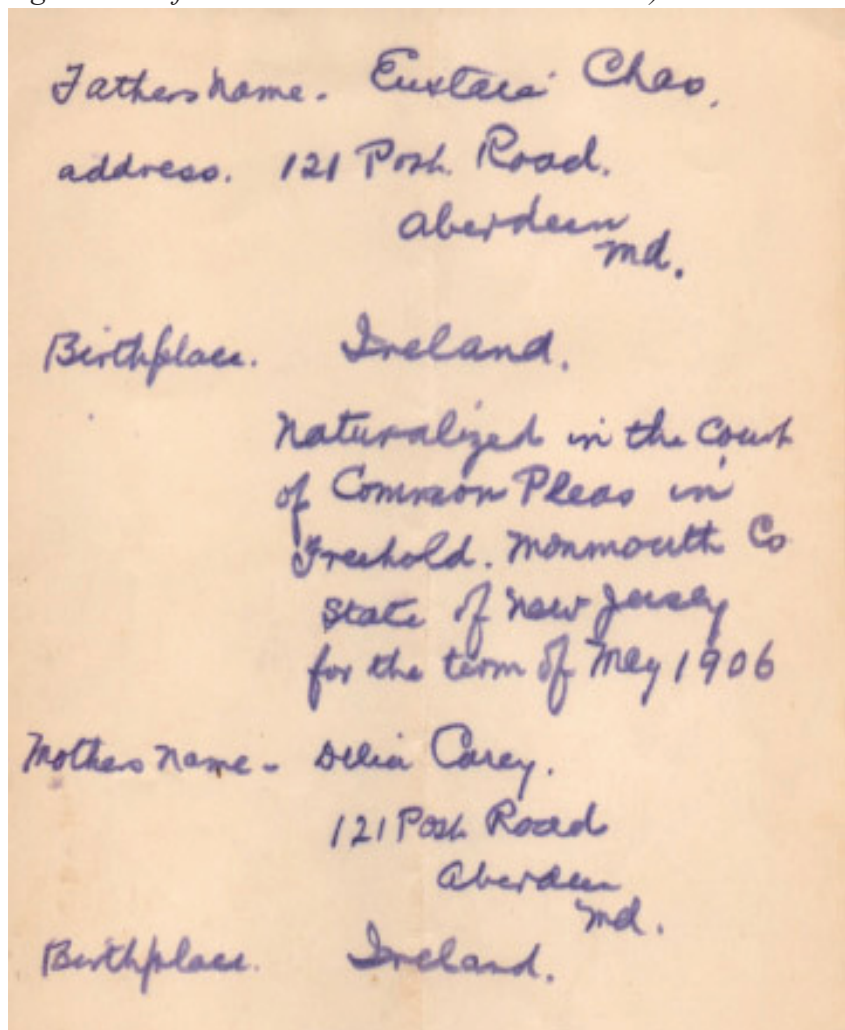 Fathers name. Eustace Chao,
address. 121 Post Road.
Aberdeen
Md.
Birthplace. Ireland.
Naturalized in the Court
of Common Pleas in
Freehold. Monmouth Co
State of New Jersey
for the term of May 1906
Mothers name - Delia Carey.
121 Post Road
Aberdeen
Md.
Birthplace. Ireland.